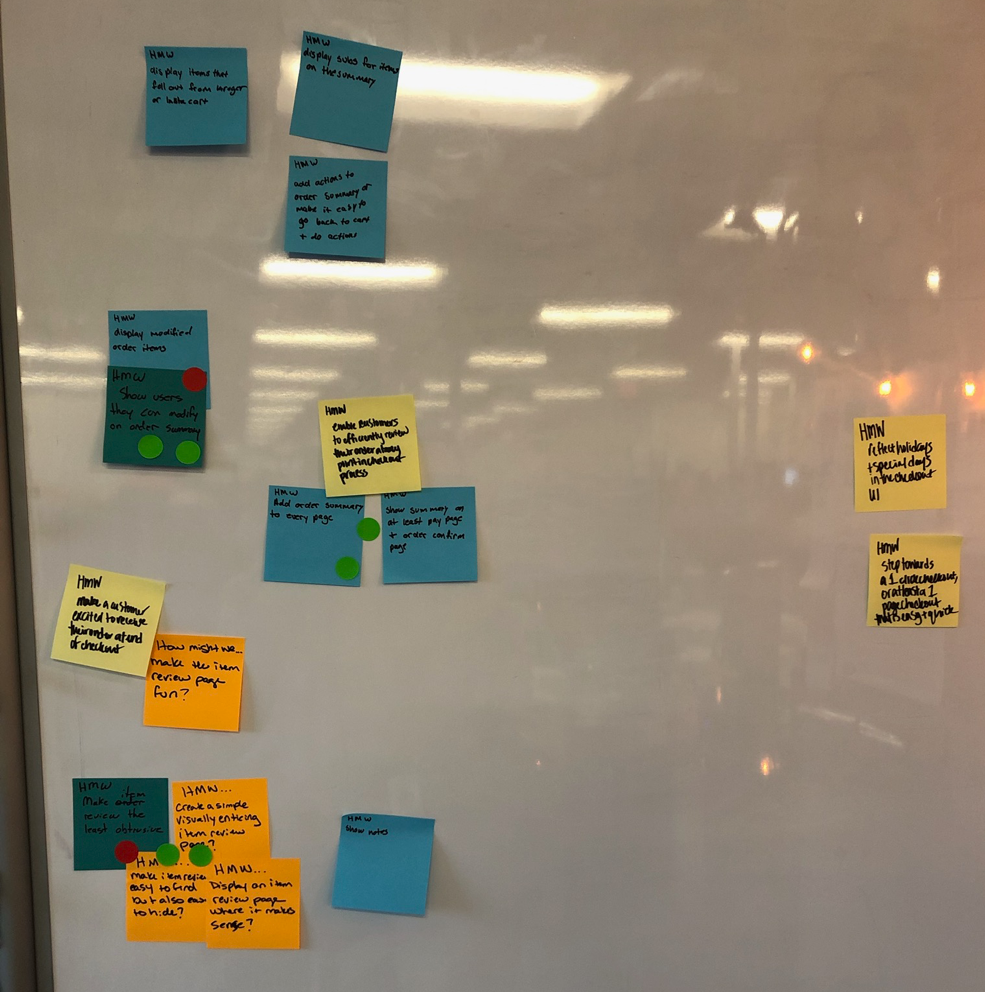 HMW
display items that
fall out from
or cart
HMW
display subs for items
on the summary
HMW
add actions to
order summary or
make it easy to
go back to cart
+ do actions
HMW
display modified
order items
HMW
Show users
they can modify
on order summary
HMW
enable customers
to efficiently review
their order at any
point in checkout
process
HMW
Add order summary
to every page
HMW
Show summary on
at least pay page
+ order confirm
page
HMW
reflect holidays
+ special days
in the checkout
UI
HMW
step towards
a 1 click checkout,
or at least a 1
page checkout
that is easy + quick
HMW
make a customer
excited to receive
their order at end
of checkout
How might we...
make the item
review page
fun?
HMW
item
Make order
review the
least obtrusive
HMW...
Create a simple
visually enticing
item review
page?
HM...
make item review
easy to find
but also easy
to hide?
HMW...
Display an item
review page
where it makes
sense?
HMW
Show notes